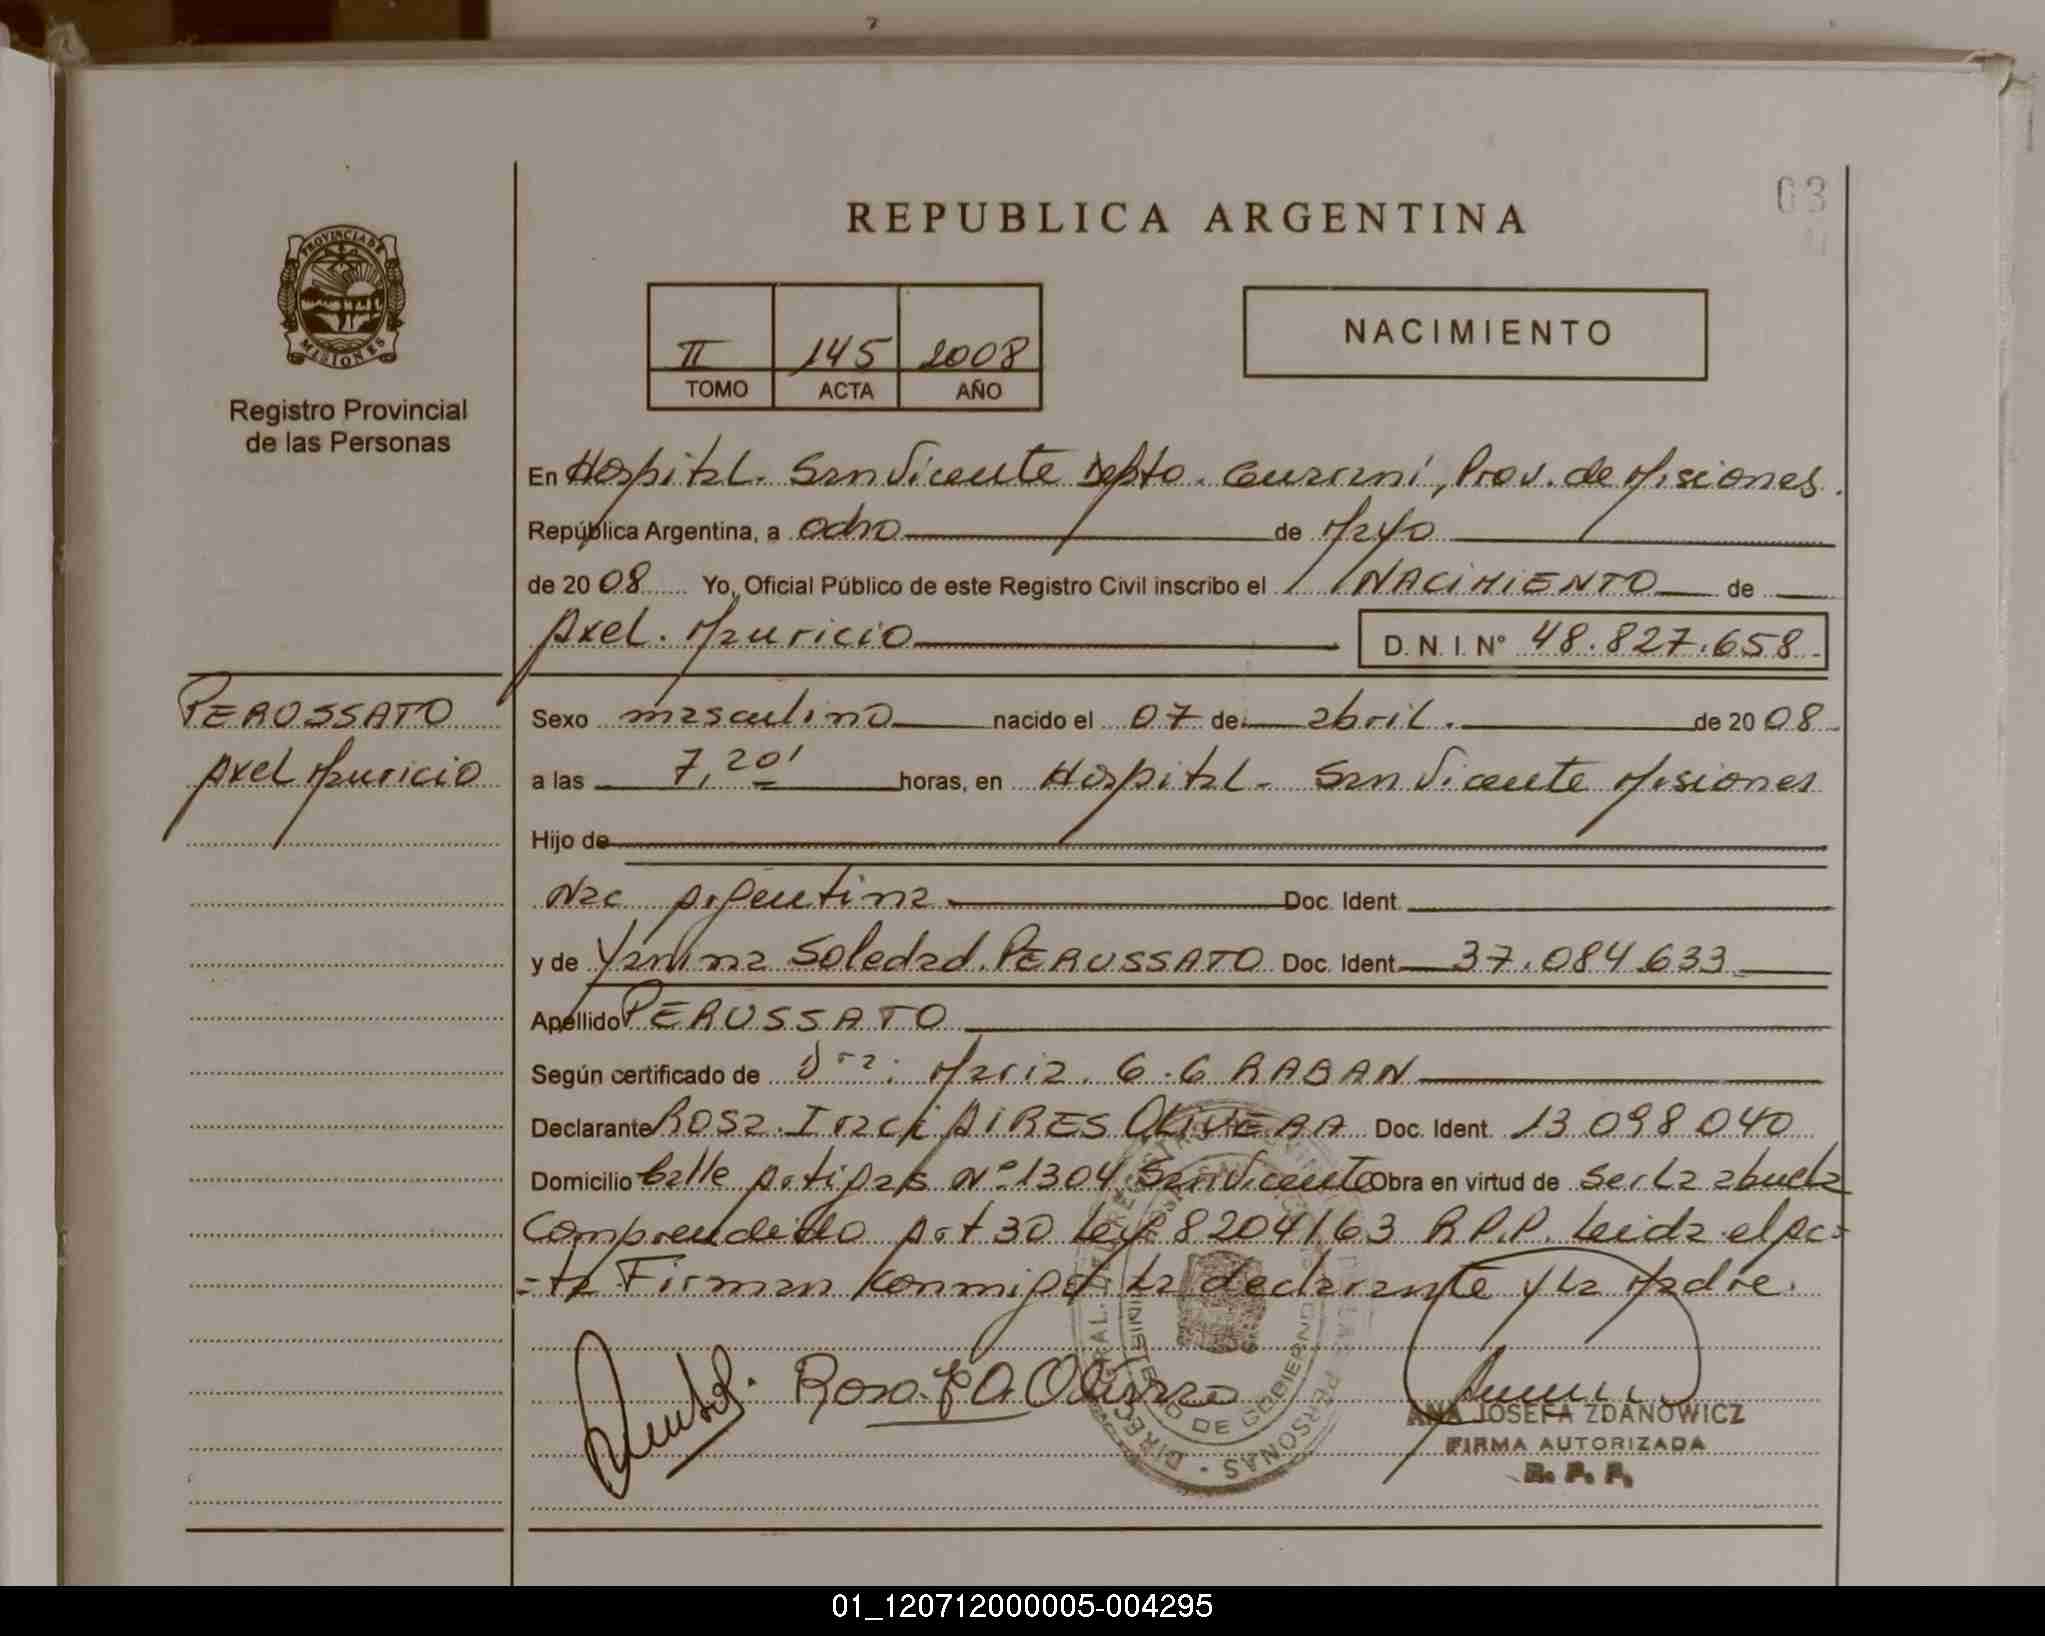 REPUBLICA ARGENTINA
03
PROVINCIA DE
MISIONES
Registro Provincial
de las Personas
II 145 2008
TOMO ACTA AÑO
NACIMIENTO
En Hospital. San Vicente Depto. Guaraní, Prov. de Misiones.
República Argentina, a ocho de Mayo
de 2008 Yo, Oficial Público de este Registro Civil inscribo el NACIMIENTO de
Axel. Mauricio D.N.I. Nº 48.827.658
PERUSSATO
Axel Mauricio
Sexo masculino nacido el 07 de abril. de 2008
a las 7,20' horas, en Hospital - San Vicente Misiones
Hijo de
Nac Argentina Doc. Ident.
y de Yanina Soledad. PERUSSATO Doc. Ident. 37.084.633
Apellido PERUSSATO
Según certificado de Dra: Maria. G. G RABAN
Declarante Rosa. Iraci AIRES OLIVERA Doc. Ident. 13 098 040
Domicilio Calle Artigas Nº 1304 San Vicente Obra en virtud de ser la abuela
Comprendido Art 30 Ley 8204/63 R.P.P. Leida el Ac-
-ta Firman conmigo la declarante y la Madre.
ANA JOSEFA ZDANOWICZ
FIRMA AUTORIZADA
R. P. P.
MINISTERIO DE GOBIERNO
01_120712000005-004295